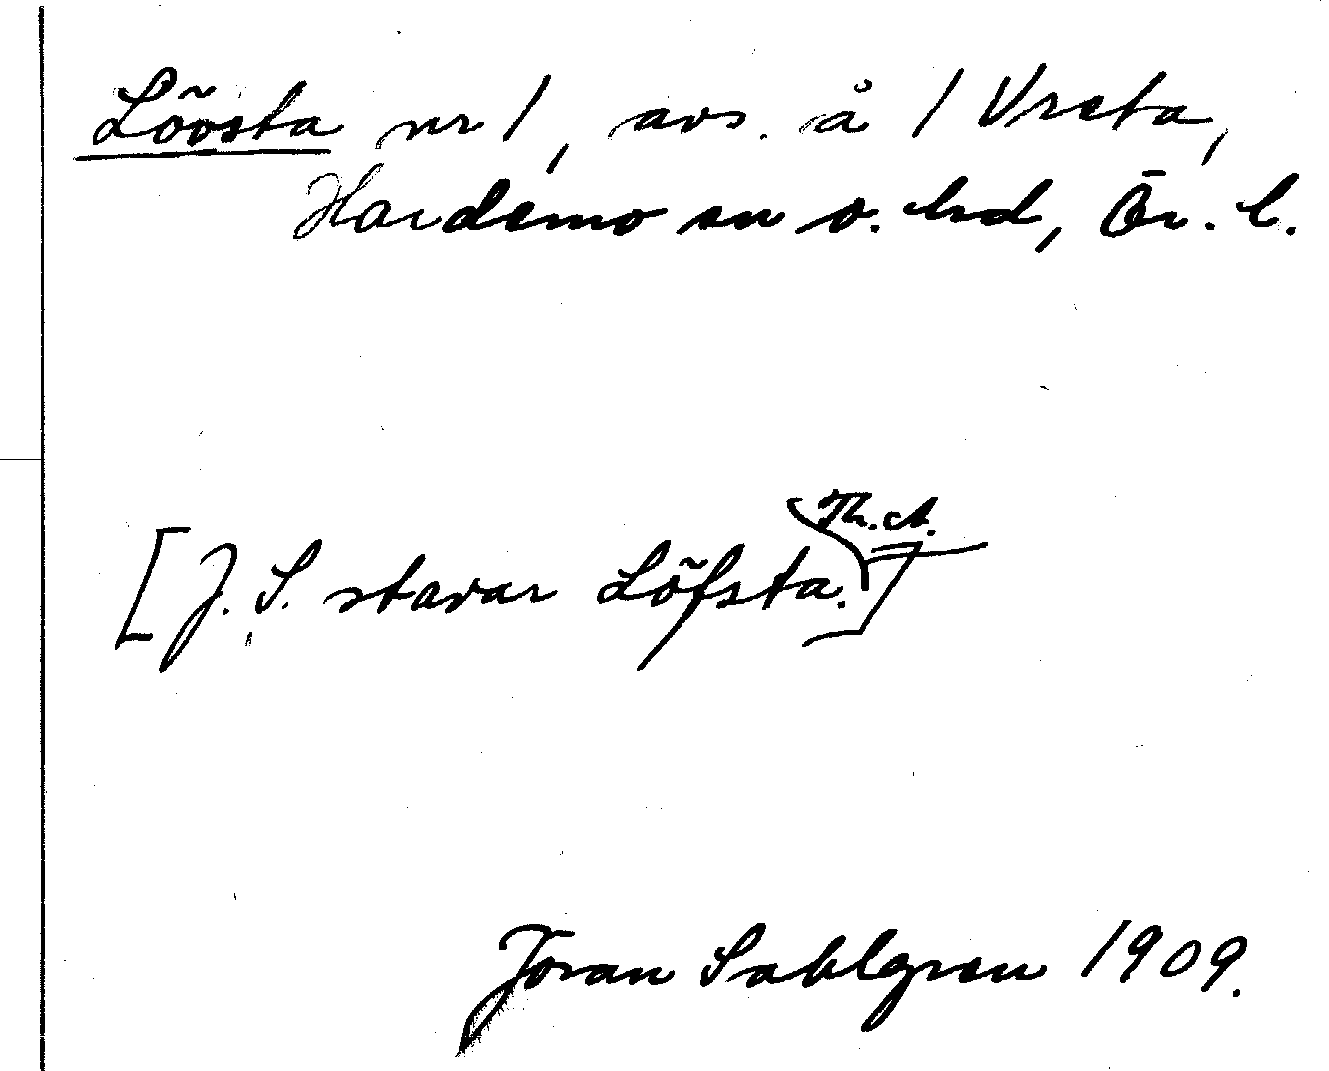 Lövsta nr 1, avs. å 1 Vreta,
Hardemo sn o. hd, Ör. l.
[J. S. stavar Löfsta. Th. A.]
Jöran Sahlgren 1909.